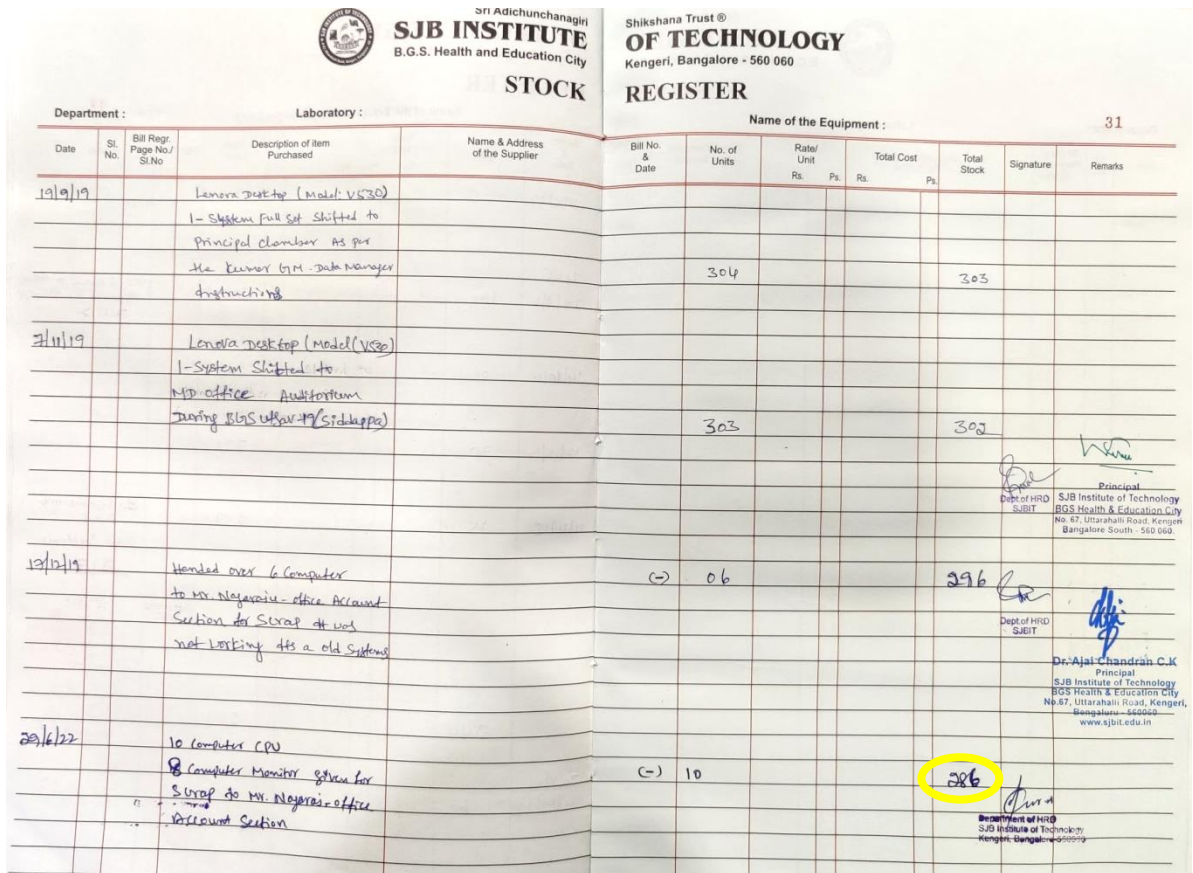 Sri Adichunchanagiri Shikshana Trust ®
SJB INSTITUTE OF TECHNOLOGY
B.G.S. Health and Education City Kengeri, Bangalore - 560 060
STOCK REGISTER
Department : Laboratory : Name of the Equipment : 31
Date Sl. No. Bill Regr. Page No./ Sl.No Description of item Purchased Name & Address of the Supplier Bill No. & Date No. of Units Rate/ Unit Rs. Ps. Total Cost Rs. Ps. Total Stock Signature Remarks
19/9/19 Lenova Desktop (Model: V530)
1- System Full Set Shifted to
Principal Chamber As per
the Kumar GM - Data Manager 304 303
Instructions
7/11/19 Lenova Desktop (Model (V530)
1-System Shifted to
MD office Auditorium
During BGS utsav-19 (Siddappa) 303 302
Principal
Dept.of HRD SJB Institute of Technology
SJBIT BGS Health & Education City
No. 67, Uttarahalli Road, Kengeri
Bangalore South - 560 060.
12/19 Handed over 6 Computer (-) 06 296
to Mr. Nagaraju - office Account
Section for Scrap
not working a old Systems
Dept.of HRD
SJBIT
Dr. Ajai Chandran C.K
Principal
SJB Institute of Technology
BGS Health & Education City
No.67, Uttarahalli Road, Kengeri,
Bengaluru - 560060
www.sjbit.edu.in
29/6/22 10 Computer CPU
8 Computer Monitor given for (-) 10 286
Scrap to Mr. Nagaraj - office
Account Section
Department of HRD
SJB Institute of Technology
Kengeri, Bangalore-560060